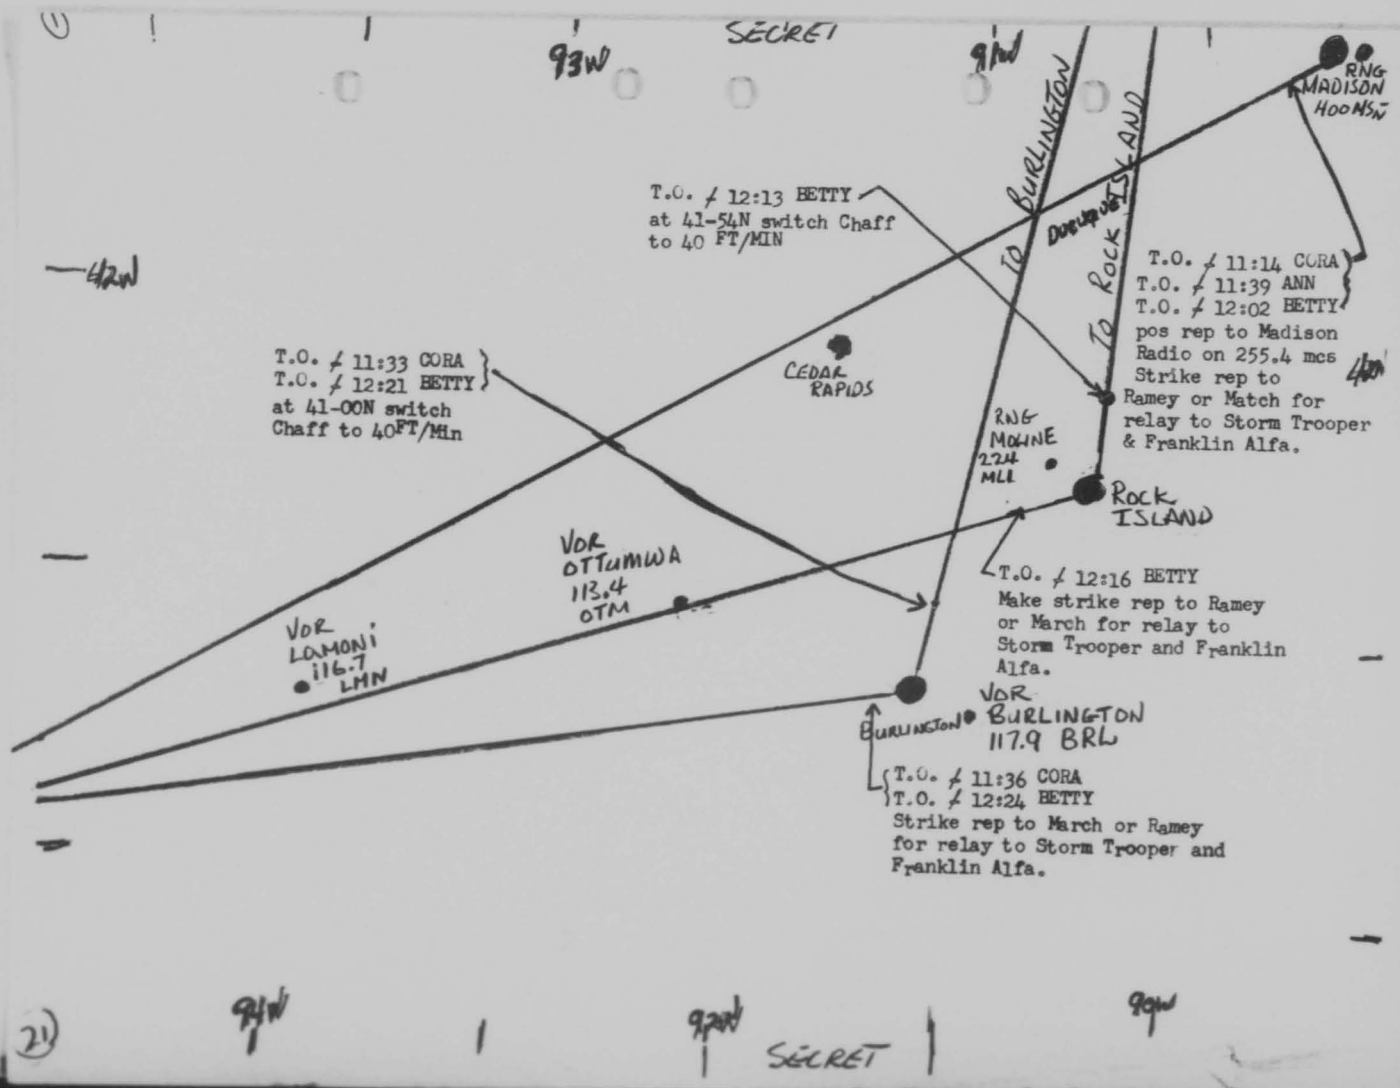 1
SECRET
93W
91W
RNG
MADISON
400 MSN
TO BURLINGTON
TO ROCK ISLAND
DUBUQUE
T.O. ≠ 12:13 BETTY
at 41-54N switch Chaff
to 40 FT/MIN
42W
T.O. ≠ 11:14 CORA
T.O. ≠ 11:39 ANN
T.O. ≠ 12:02 BETTY
pos rep to Madison
Radio on 255.4 mcs
Strike rep to
Ramey or Match for
relay to Storm Trooper
& Franklin Alfa.
T.O. ≠ 11:33 CORA
T.O. ≠ 12:21 BETTY
at 41-00N switch
Chaff to 40FT/Min
CEDAR
RAPIDS
RNG
MOLINE
224
MLI
ROCK
ISLAND
VOR
OTTUMWA
113.4
OTM
T.O. ≠ 12:16 BETTY
Make strike rep to Ramey
or March for relay to
Storm Trooper and Franklin
Alfa.
VOR
LAMONI
116.7
LMN
BURLINGTON
VOR
BURLINGTON
117.9 BRL
T.O. ≠ 11:36 CORA
T.O. ≠ 12:24 BETTY
Strike rep to March or Ramey
for relay to Storm Trooper and
Franklin Alfa.
94W
92W
90W
21
SECRET